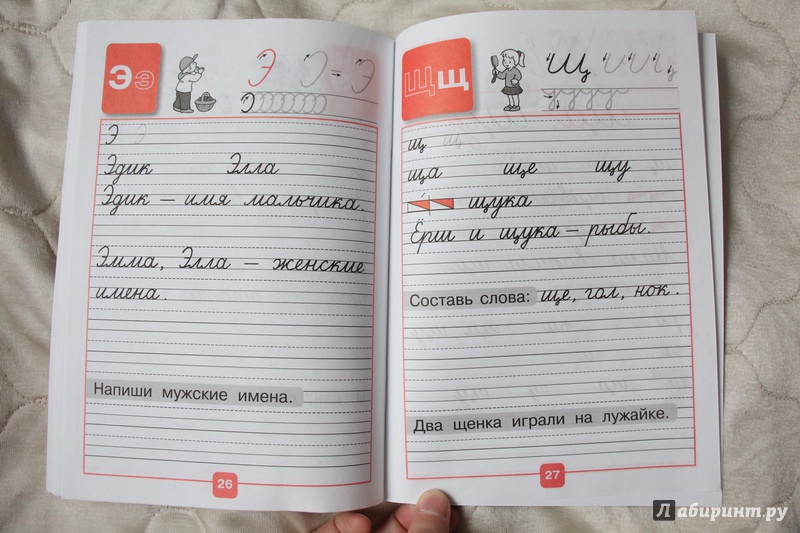 Ээ
Э Э - Э
Э
Э Э
Эдик Элла
Эдик – имя мальчика.
Эмма, Элла – женские
имена.
Напиши мужские имена.
26
Щщ
Щ
щ щ
ща ще щу
щука
Ёрш и щука – рыбы.
Составь слова: ще, гол, нок.
Два щенка играли на лужайке.
27
Лабиринт.ру